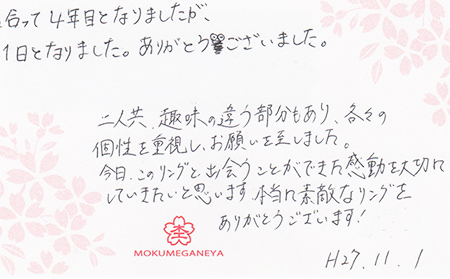 合って4年目となりましたが、
1日となりました。ありがとうございました。
二人共、趣味の違う部分もあり、各々の
個性を重視し、お願いを至しました。
今日、このリングと出会うことができた感動を大切に
していきたいと思います。本当に素敵なリングを
ありがとうございます!
MOKUMEGANEYA
H27.11.1